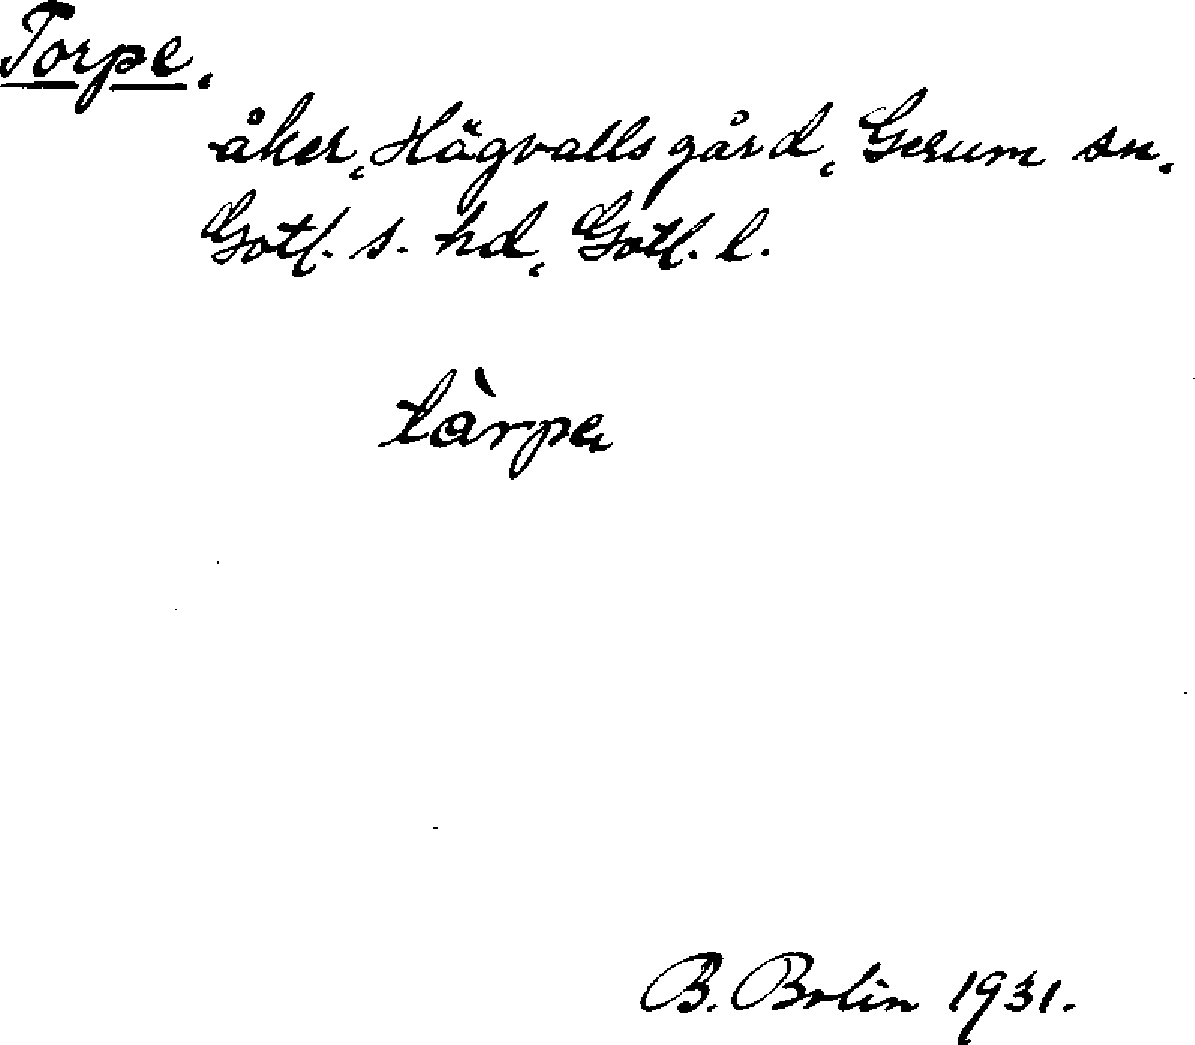 Torpe.
åker, Hägvalls gård, Gerum sn.
Gotl. s. hd, Gotl. l.
tàrpe
B. Bolin 1931.